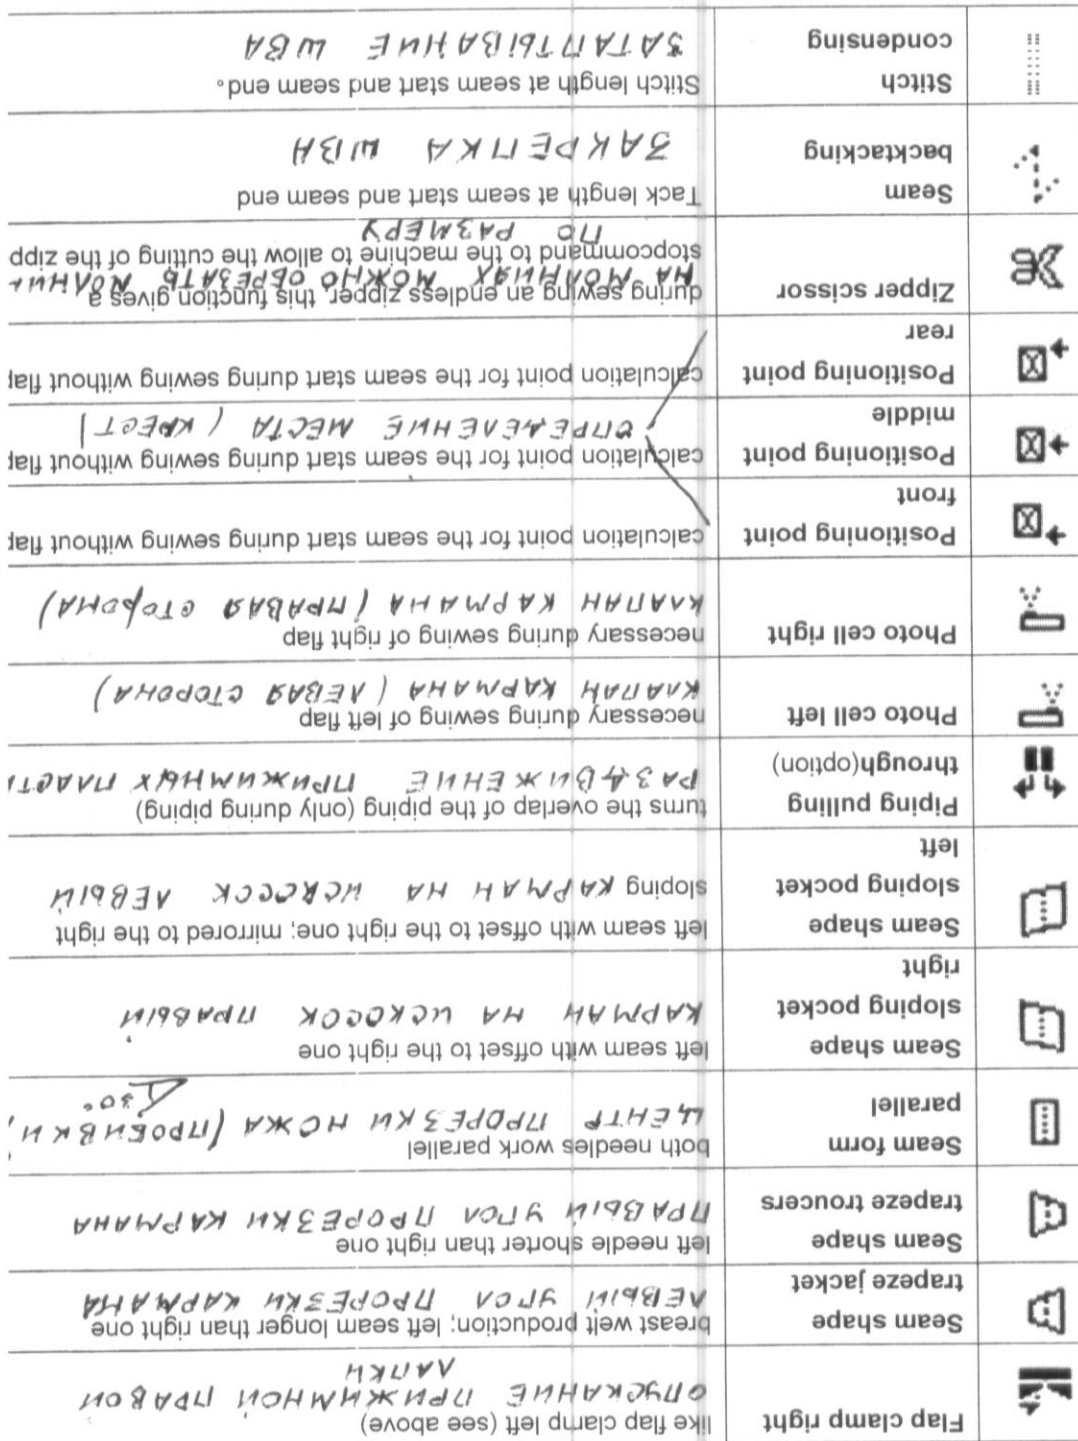 Flap clamp right
like flap clamp left (see above)
ОПУСКАНИЕ ПРИЖИМНОЙ ПРАВОЙ
ЛАПКИ
Seam shape
trapeze jacket
breast welt production; left seam longer than right one
ЛЕВЫЙ УГОЛ ПРОРЕЗКИ КАРМАНА
Seam shape
trapeze troucers
left needle shorter than right one
ПРАВЫЙ УГОЛ ПРОРЕЗКИ КАРМАНА
Seam form
parallel
both needles work parallel
ЦЕНТР ПРОРЕЗКИ НОЖА (ПРОБИВКИ)
30°
Seam shape
sloping pocket
right
left seam with offset to the right one
КАРМАН НА ИСКОСОК ПРАВЫЙ
Seam shape
sloping pocket
left
left seam with offset to the right one; mirrored to the right
sloping КАРМАН НА ИСКОСОК ЛЕВЫЙ
Piping pulling
through(option)
turns the overlap of the piping (only during piping)
РАЗДВИЖЕНИЕ ПРИЖИМНЫХ ПЛАСТИ
Photo cell left
necessary during sewing of left flap
КЛАПАН КАРМАНА (ЛЕВАЯ СТОРОНА)
Photo cell right
necessary during sewing of right flap
КЛАПАН КАРМАНА (ПРАВАЯ СТОРОНА)
Positioning point
front
calculation point for the seam start during sewing without flap
Positioning point
middle
calculation point for the seam start during sewing without flap
ОПРЕДЕЛЕНИЕ МЕСТА (КРЕСТ)
Positioning point
rear
calculation point for the seam start during sewing without flap
Zipper scissor
during sewing an endless zipper, this function gives a
НА МОЛНИЯХ МОЖНО ОБРЕЗАТЬ МОЛНИ
stopcommand to the machine to allow the cutting of the zipp
ПО РАЗМЕРУ
Seam
backtacking
Tack length at seam start and seam end
ЗАКРЕПКА ШВА
Stitch
condensing
Stitch length at seam start and seam end.
ЗАТАПТЫВАНИЕ ШВА